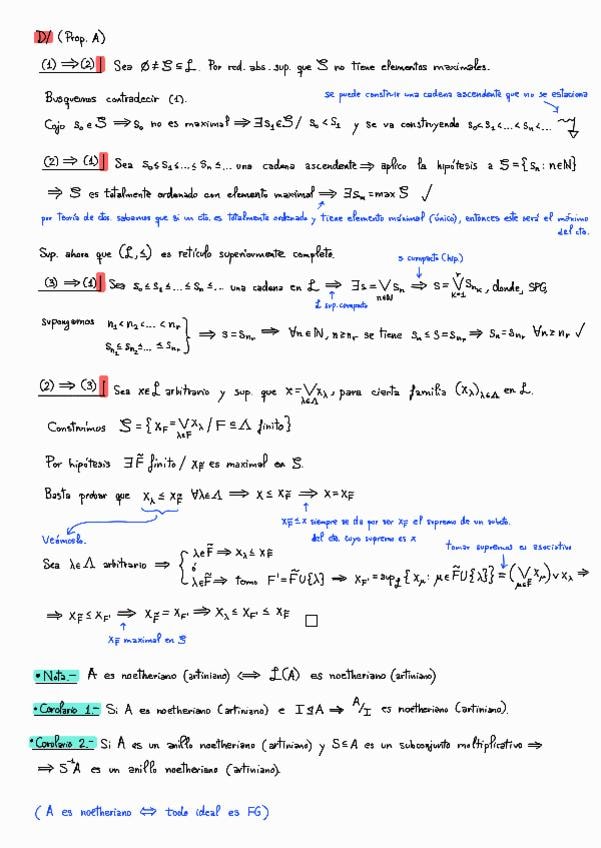 D/ (Prop. A)
(1) ⟹ (2)| Sea ∅ ≠ S ⊆ L. Por red. abs. sup. que S no tiene elementos maximales.
Busquemos contradecir (1).
se puede construir una cadena ascendente que no se estaciona
Cojo s₀ ∈ S ⟹ s₀ no es maximal ⟹ ∃s₁∈S / s₀ < s₁ y se va construyendo s₀<s₁<...<sₙ<...
(2) ⟹ (1)| Sea s₀≤s₁≤...≤sₙ≤... una cadena ascendente ⟹ aplico la hipótesis a S = {sₙ : n∈ℕ}
⟹ S es totalmente ordenado con elemento maximal ⟹ ∃sₙ = max S ✓
por Teoría de ctos. sabemos que si un cto. es totalmente ordenado y tiene elemento máximal (único), entonces este será el máximo
del cto.
Sup. ahora que (L,≤) es retículo superiormente completo.
s compacto (hip.)
(3) ⟹ (1)| Sea s₀≤s₁≤...≤sₙ≤... una cadena en L ⟹ ∃s = ⋁_{n∈ℕ} sₙ ⟹ s = ⋁_{k=1}^{r} s_{n_k}, donde, SPG,
L sup. completo
supongamos n₁<n₂<...<n_r
s_{n₁}≤s_{n₂}≤...≤s_{n_r} } ⟹ s = s_{n_r} ⟹ ∀n∈ℕ, n≥n_r se tiene sₙ ≤ s = s_{n_r} ⟹ sₙ = s_{n_r} ∀n≥n_r ✓
(2) ⟹ (3)| Sea x∈L arbitrario y sup. que x = ⋁_{λ∈Λ} x_λ, para cierta familia (x_λ)_{λ∈Λ} en L.
Construimos S = {x_F = ⋁_{λ∈F} x_λ / F ⊆ Λ finito}
Por hipótesis ∃F̃ finito / x_F̃ es maximal en S.
Basta probar que x_λ ≤ x_F̃ ∀λ∈Λ ⟹ x ≤ x_F̃ ⟹ x = x_F̃
x_F̃ ≤ x siempre se da por ser x_F̃ el supremo de un subcto.
del cto. cuyo supremo es x
Veámoslo.
tomar supremos es asociativo
Sea λ∈Λ arbitrario ⟹ { λ∈F̃ ⟹ x_λ ≤ x_F̃
ó
λ∉F̃ ⟹ tomo F' = F̃∪{λ} ⟹ x_{F'} = sup_L {x_μ : μ∈F̃∪{λ}} = (⋁_{μ∈F̃} x_μ) ∨ x_λ ⟹
⟹ x_F̃ ≤ x_{F'} ⟹ x_F̃ = x_{F'} ⟹ x_λ ≤ x_{F'} ≤ x_F̃ □
x_F̃ maximal en S
• Nota.- A es noetheriano (artiniano) ⟺ L(A) es noetheriano (artiniano)
• Corolario 1.- Si A es noetheriano (artiniano) e I⊴A ⟹ A/I es noetheriano (artiniano).
• Corolario 2.- Si A es un anillo noetheriano (artiniano) y S⊆A es un subconjunto multiplicativo ⟹
⟹ S⁻¹A es un anillo noetheriano (artiniano).
( A es noetheriano ⟺ todo ideal es FG)